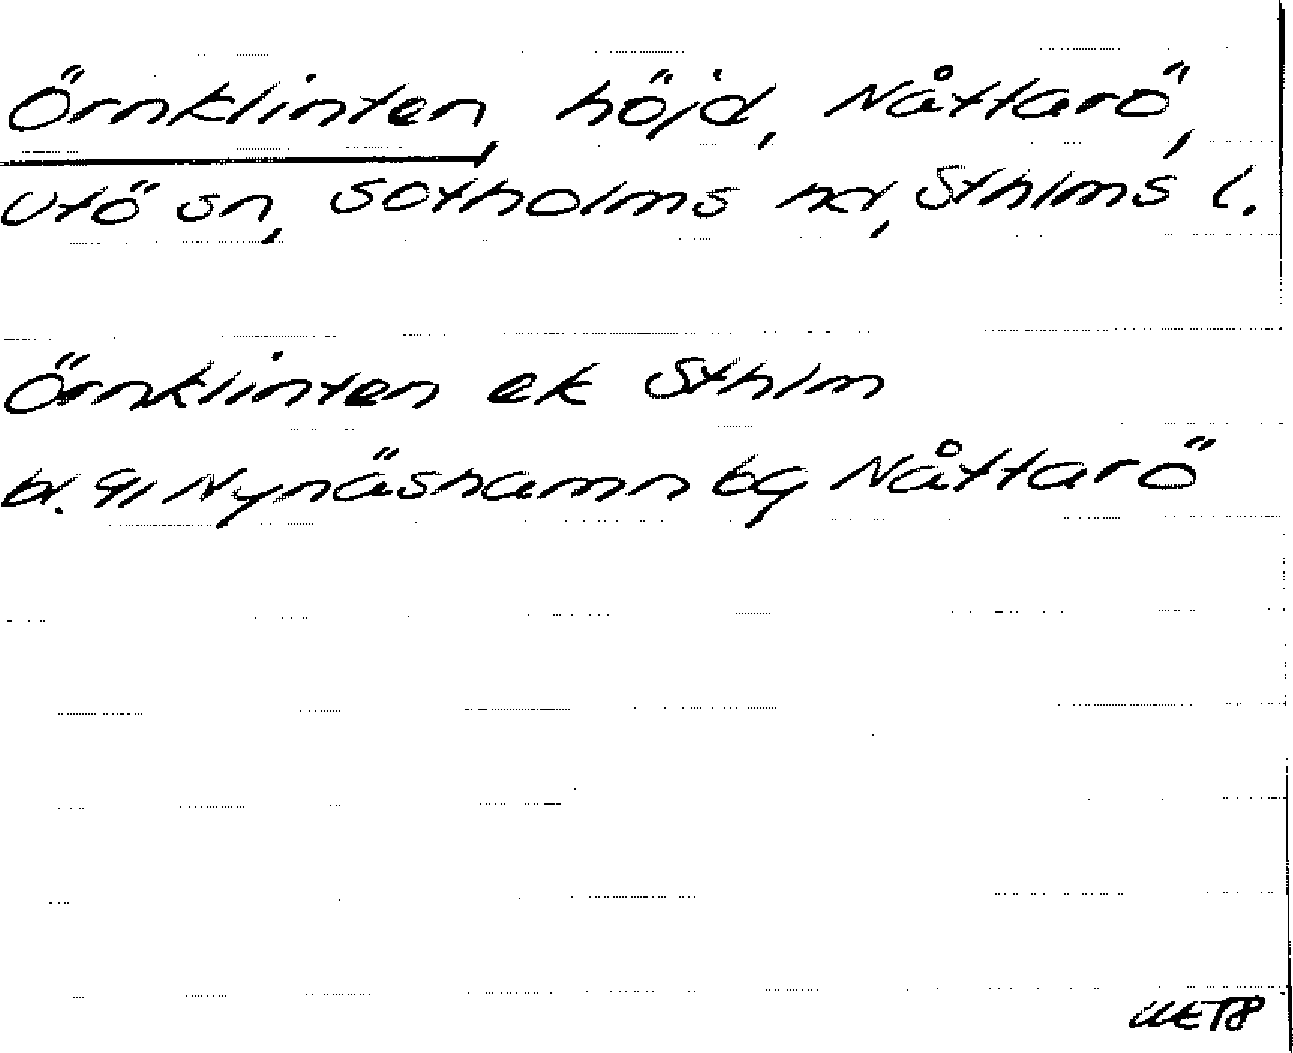 Örnklinten, höjd, Nåttarö,
Utö sn, Sotholms hd, Sthlms l.
Örnklinten ek Sthlm
bl. 91 Nynäshamn bg Nåttarö